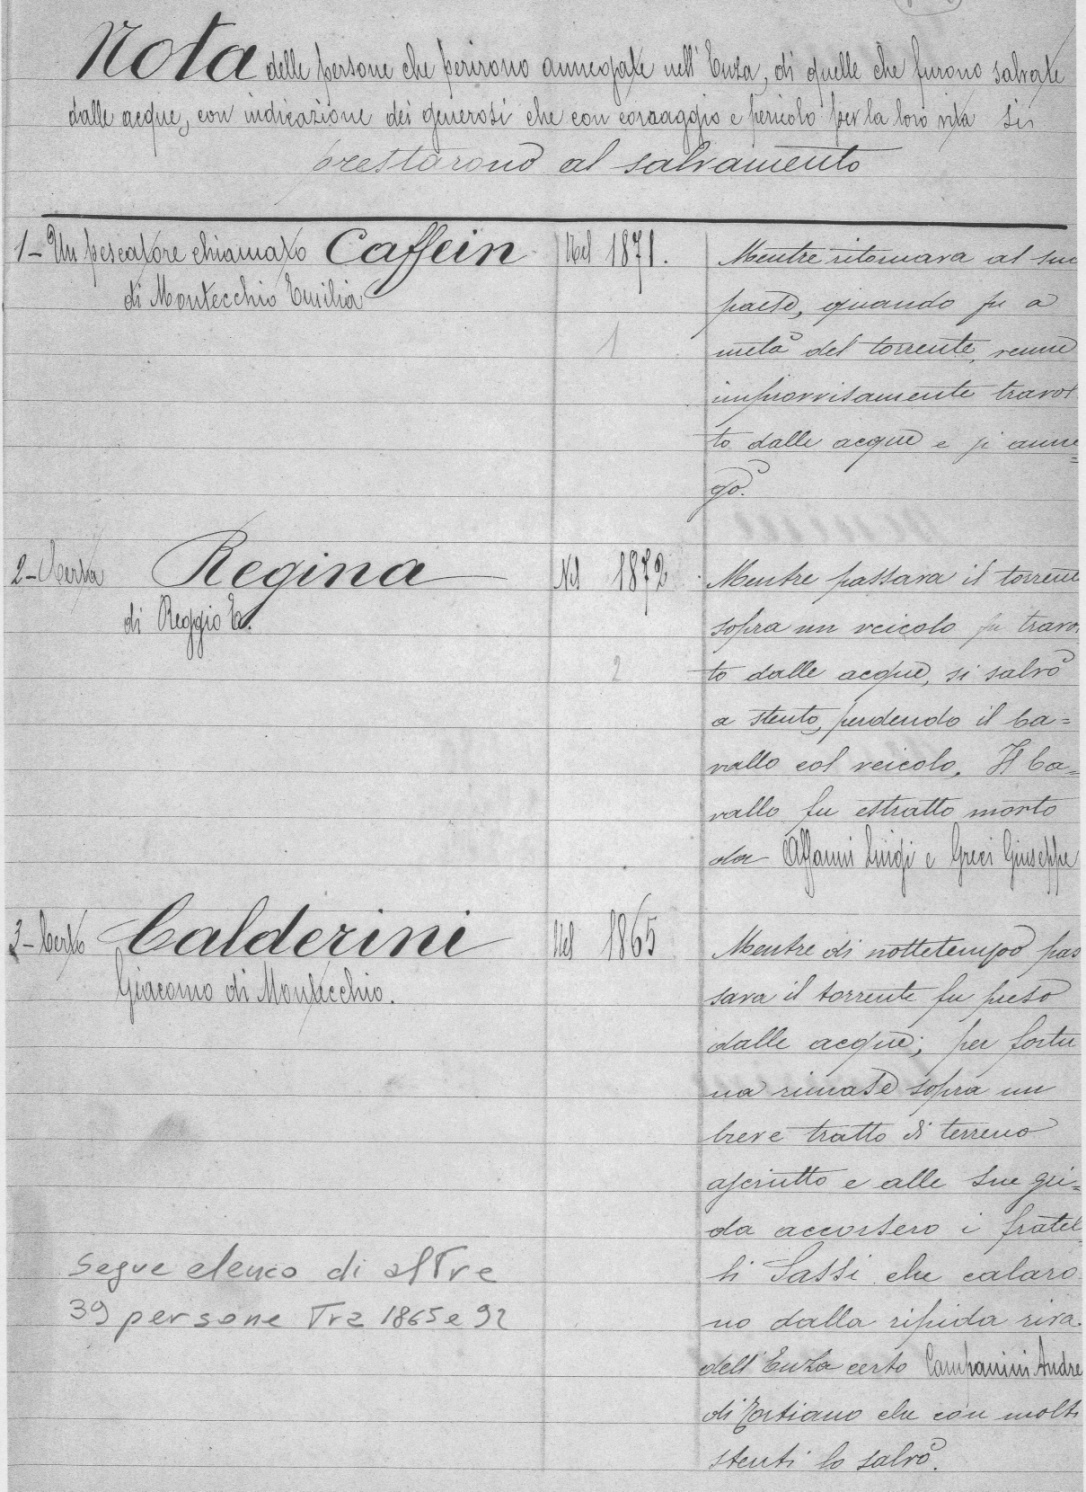 Nota delle persone che perirono annegate nell'Enza, di quelle che furono salvate
dalle acque, con indicazione dei generosi che con coraggio e pericolo per la loro vita si
prestarono al salvamento
1- Un pescatore chiamato Caffein
di Montecchio Emilia
Nel 1871.
1
Mentre ritornava al suo
paese, quando fu a
metà del torrente, venne
improvvisamente travol
to dalle acque e si anne=
gò.
2- Certa Regina
di Reggio E.
Nel 1872
2
Mentre passava il torrente
sopra un veicolo fu travol
to dalle acque, si salvò
a stento, perdendo il ca=
vallo col veicolo. Il ca=
vallo fu estratto morto
da Affanni Luigi e Greci Giuseppe
3- Certo Calderini
Giacomo di Montecchio.
Nel 1865
Mentre di nottetempo pas
sava il torrente fu preso
dalle acque; per fortu
na rimase sopra un
breve tratto di terreno
asciutto e alle sue gri=
da accorsero i fratel=
li Sassi che calaro
no dalla ripida riva
dell'Enza certo Campanini Andre
di Tortiano che con molti
stenti lo salvò.
segue elenco di altre
39 persone Tra 1865 e 92